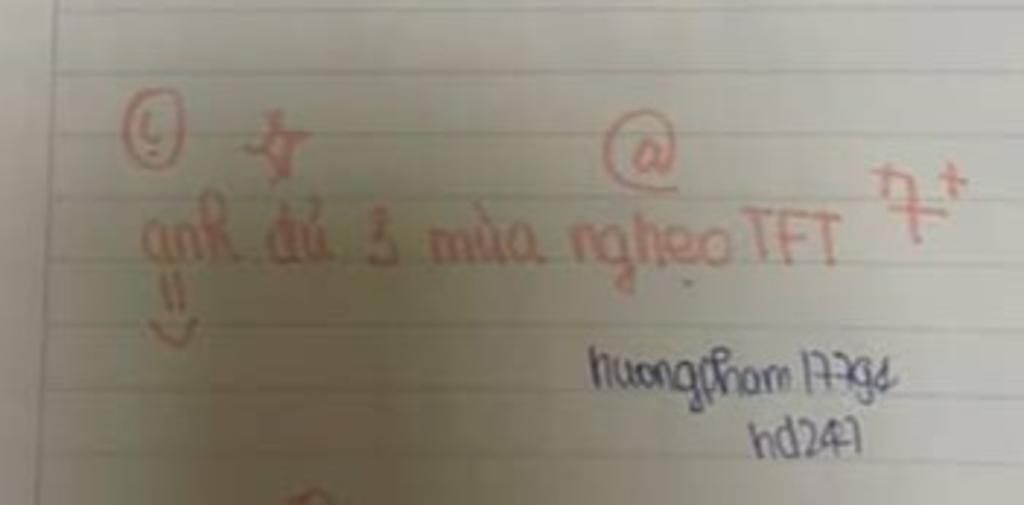 @ 7+
anh đủ 3 mùa nghẹo TFT
huongpham177gd
hd247